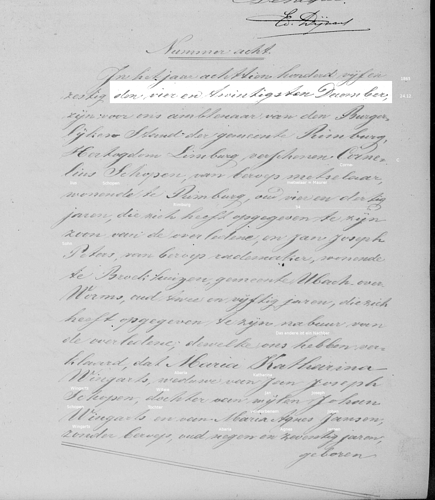 Ed. Dijkens
Nummer acht.
In het jaar achttien honderd vijf en
zestig den vier en twintigsten December,
zijn voor ons ambtenaar van den Burger-
lijken Stand der gemeente Rimburg,
Hertogdom Limburg, verschenen Corne-
lius Schopen, van beroep metselaar,
wonende te Rimburg, oud vier en dertig
jaren, die zich heeft opgegeven te zijn
zoon van de overledene, en Jan Joseph
Peters, van beroep rademaker, wonende
te Broekhuizen, gemeente Ubach over
Worms, oud twee en vijftig jaren, die zich
heeft opgegeven te zijn nabuur van
de overledene; dewelke ons hebben ver-
klaard, dat Maria Katharina
Wingarts, weduwe van Jan Joseph
Schopen, dochter van wijlen Johan
Wingarts en van Maria Agnes Jansen,
zonder beroep, oud negen en zeventig jaren,
geboren